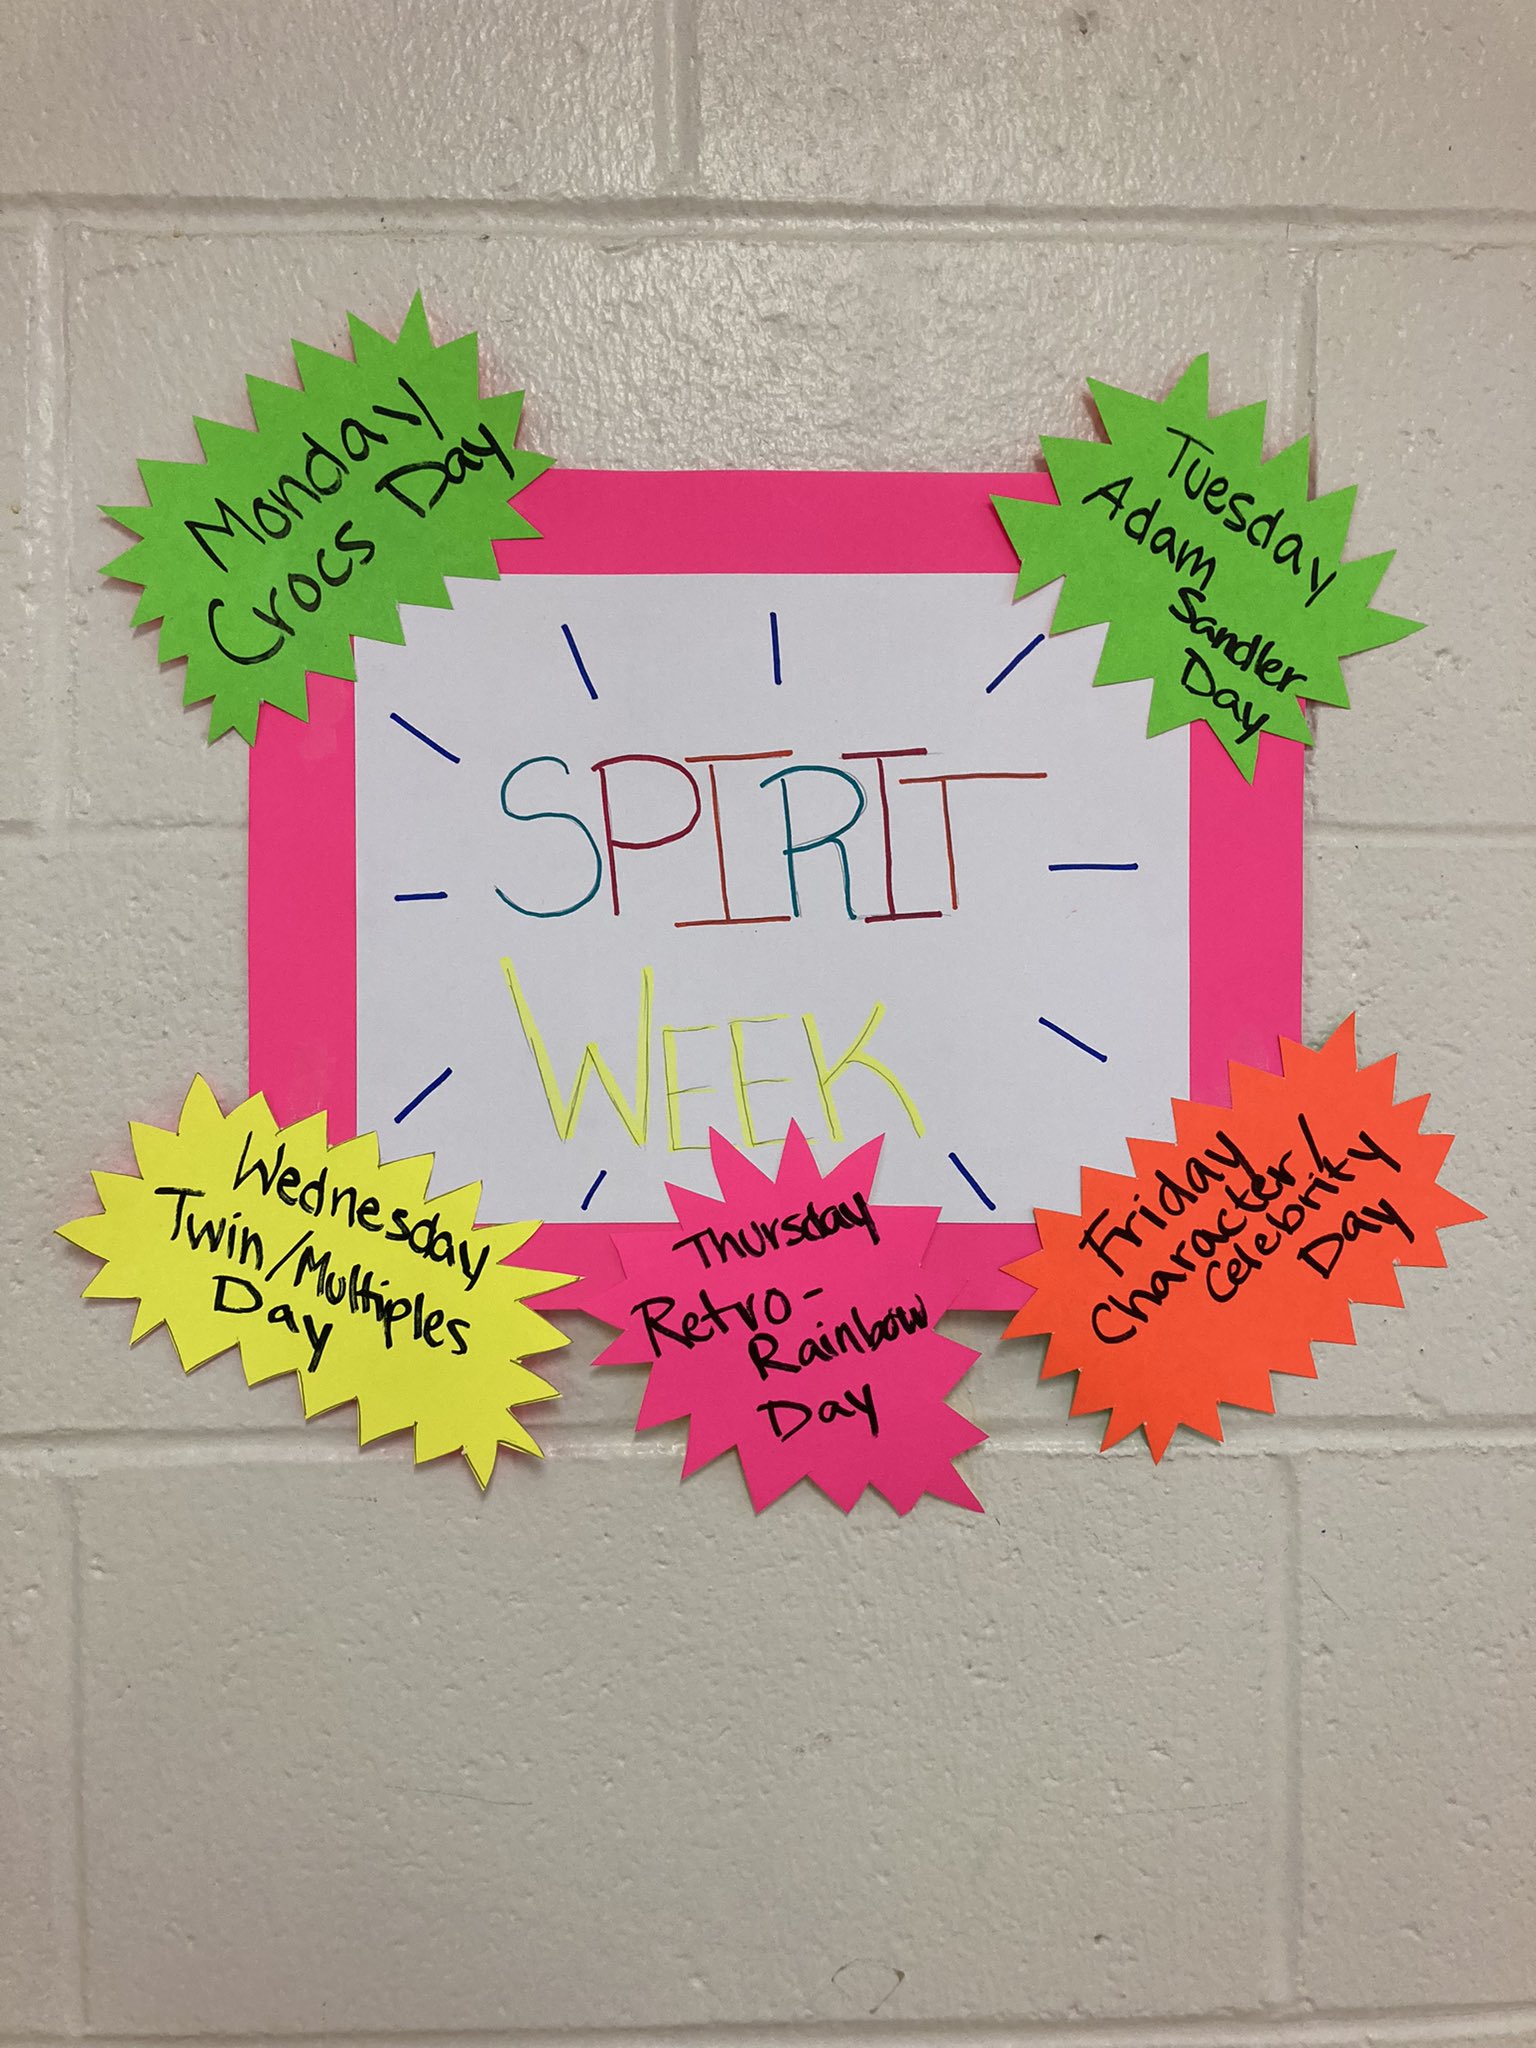 Monday
Crocs Day
Tuesday
Adam
Sandler
Day
SPIRIT
WEEK
Wednesday
Twin/Multiples
Day
Thursday
Retro-
Rainbow
Day
Friday
Character/
Celebrity
Day